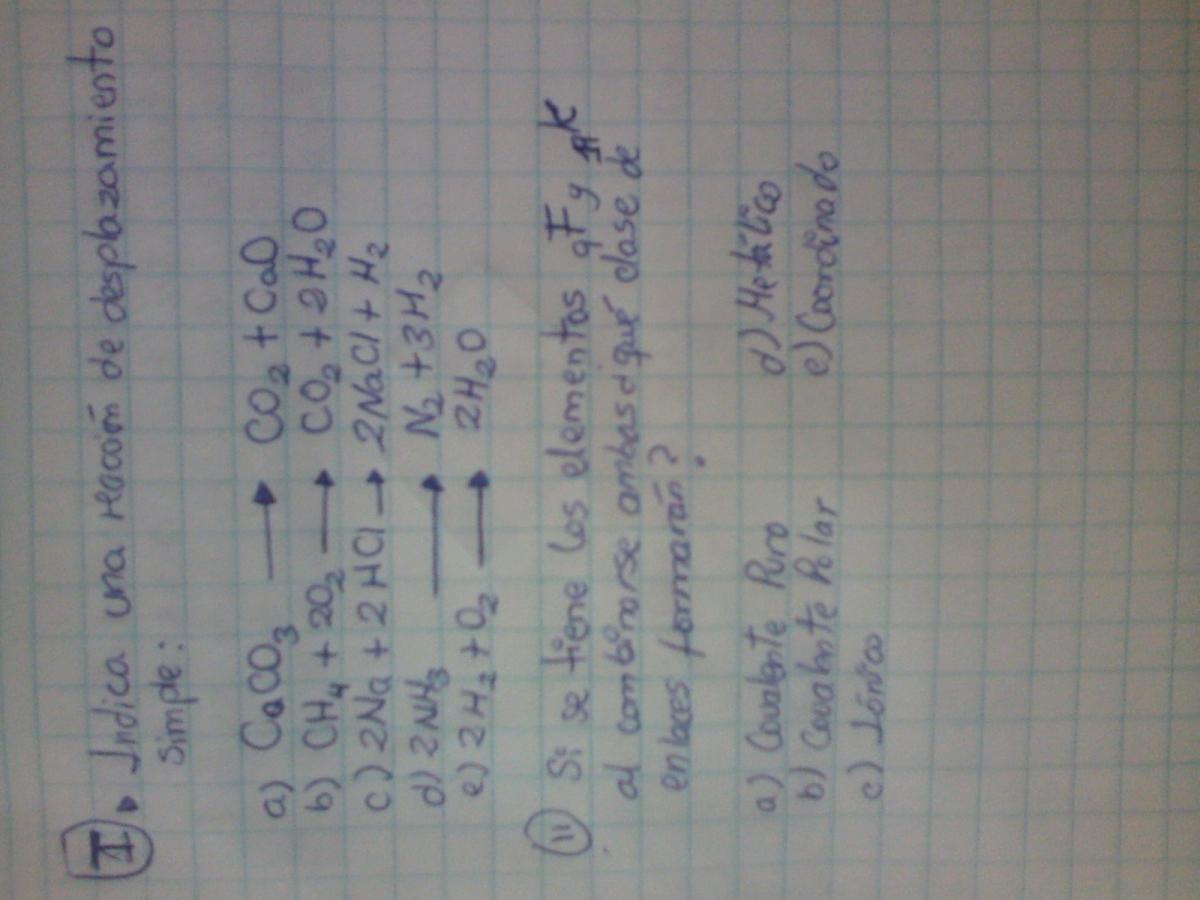 I ▸ Indica una reacción de desplazamiento
simple:
a) CaCO3 → CO2 + CaO
b) CH4 + 2O2 → CO2 + 2H2O
c) 2Na + 2HCl → 2NaCl + H2
d) 2NH3 → N2 + 3H2
e) 2H2 + O2 → 2H2O
II Si se tiene los elementos 9F y 19K
al combinarse ambas ¿qué clase de
enlaces formarán?
a) Covalente Puro
b) Covalente Polar
c) Iónico
d) Metálico
e) Coordinado